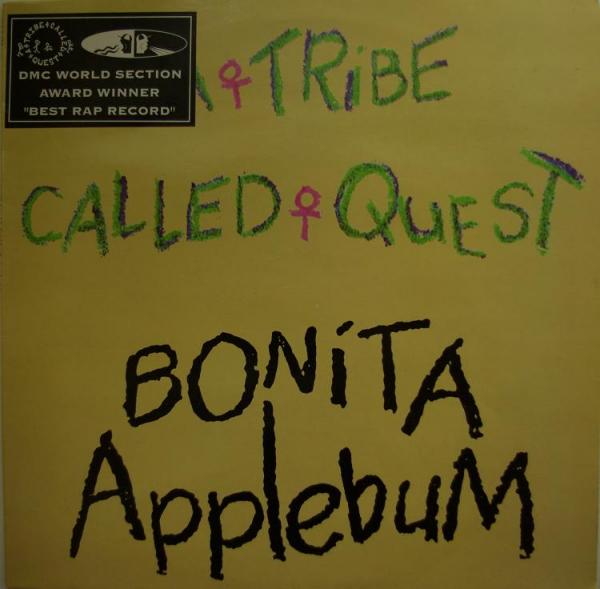 THE TRIBE CALLED QUEST
DMC WORLD SECTION
AWARD WINNER
"BEST RAP RECORD"
A TRiBE
CALLED QUEST
BONiTA
ApplebuM